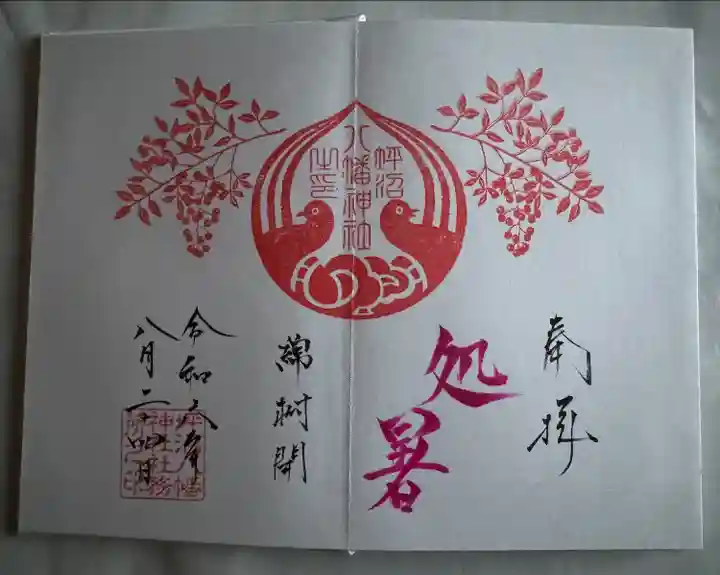 奉拝
処暑
坪沼
八幡神社
之印
綿柎開
令和六年
八月二十四日
坪沼八幡
神社社務